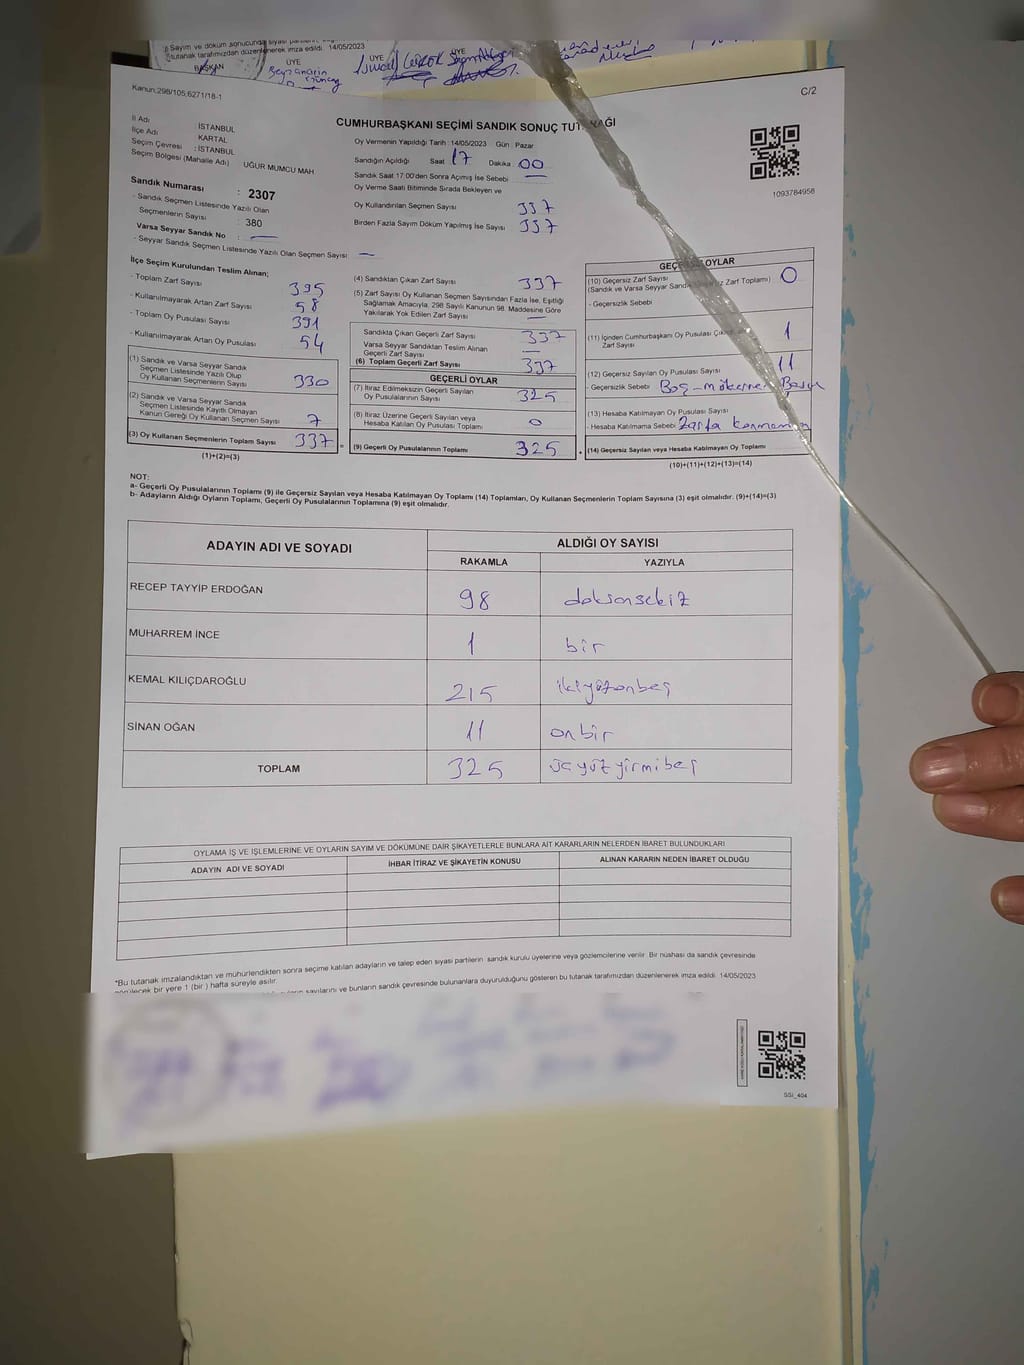 Sayım ve döküm sonucunda siyasi
tutanak tarafımızdan düzenlenerek imza edildi. 14/05/2023
BAŞKAN ÜYE ÜYE ÜYE
Kanun;298/105;6271/18-1
C/2
CUMHURBAŞKANI SEÇİMİ SANDIK SONUÇ TUT
İl Adı İSTANBUL
İlçe Adı KARTAL
Seçim Çevresi : İSTANBUL
Seçim Bölgesi (Mahalle Adı) UĞUR MUMCU MAH
Sandık Numarası : 2307
- Sandık Seçmen Listesinde Yazılı Olan
Seçmenlerin Sayısı : 380
Varsa Seyyar Sandık No : —
- Seyyar Sandık Seçmen Listesinde Yazılı Olan Seçmen Sayısı : —
Oy Vermenin Yapıldığı Tarih : 14/05/2023 Gün : Pazar
Sandığın Açıldığı Saat 17 Dakika 00
Sandık Saat 17:00'den Sonra Açımış İse Sebebi —
Oy Verme Saati Bitiminde Sırada Bekleyen ve
Oy Kullandırılan Seçmen Sayısı 337
Birden Fazla Sayım Döküm Yapılmış İse Sayısı 337
1093784958
İlçe Seçim Kurulundan Teslim Alınan;
- Toplam Zarf Sayısı 395
- Kullanılmayarak Artan Zarf Sayısı 58
- Toplam Oy Pusulası Sayısı 391
- Kullanılmayarak Artan Oy Pusulası 54
(1) Sandık ve Varsa Seyyar Sandık
Seçmen Listesinde Yazılı Olup
Oy Kullanan Seçmenlerin Sayısı 330
(2) Sandık ve Varsa Seyyar Sandık
Seçmen Listesinde Kayıtlı Olmayan
Kanun Gereği Oy Kullanan Seçmen Sayısı 7
(3) Oy Kullanan Seçmenlerin Toplam Sayısı 337
(1)+(2)=(3)
(4) Sandıktan Çıkan Zarf Sayısı 337
(5) Zarf Sayısı Oy Kullanan Seçmen Sayısından Fazla İse, Eşitliği
Sağlamak Amacıyla, 298 Sayılı Kanunun 98. Maddesine Göre
Yakılarak Yok Edilen Zarf Sayısı —
Sandıkta Çıkan Geçerli Zarf Sayısı 337
Varsa Seyyar Sandıktan Teslim Alınan
Geçerli Zarf Sayısı —
(6) Toplam Geçerli Zarf Sayısı 337
GEÇERLİ OYLAR
(7) İtiraz Edilmeksizin Geçerli Sayılan
Oy Pusulalarının Sayısı 325
(8) İtiraz Üzerine Geçerli Sayılan veya
Hesaba Katılan Oy Pusulası Toplamı 0
(9) Geçerli Oy Pusulalarının Toplamı 325
OYLAR
(10) Geçersiz Zarf Sayısı 0
(Sandık ve Varsa Seyyar Sandık Zarf Toplamı)
- Geçersizlik Sebebi
(11) İçinden Cumhurbaşkanı Oy Pusulası
Zarf Sayısı 1
(12) Geçersiz Sayılan Oy Pusulası Sayısı 11
- Geçersizlik Sebebi Boş -
(13) Hesaba Katılmayan Oy Pusulası Sayısı
- Hesaba Katılmama Sebebi Zarfa
(14) Geçersiz Sayılan veya Hesaba Katılmayan Oy Toplamı
(10)+(11)+(12)+(13)=(14)
NOT:
a- Geçerli Oy Pusulalarının Toplamı (9) ile Geçersiz Sayılan veya Hesaba Katılmayan Oy Toplamı (14) Toplamları, Oy Kullanan Seçmenlerin Toplam Sayısına (3) eşit olmalıdır. (9)+(14)=(3)
b- Adayların Aldığı Oyların Toplamı, Geçerli Oy Pusulalarının Toplamına (9) eşit olmalıdır.
ADAYIN ADI VE SOYADI ALDIĞI OY SAYISI
RAKAMLA YAZIYLA
RECEP TAYYİP ERDOĞAN 98 doksansekiz
MUHARREM İNCE 1 bir
KEMAL KILIÇDAROĞLU 215 ikiyüzonbeş
SİNAN OĞAN 11 onbir
TOPLAM 325 üçyüzyirmibeş
OYLAMA İŞ VE İŞLEMLERİNE VE OYLARIN SAYIM VE DÖKÜMÜNE DAİR ŞİKAYETLERLE BUNLARA AİT KARARLARIN NELERDEN İBARET BULUNDUKLARI
ADAYIN ADI VE SOYADI İHBAR İTİRAZ VE ŞİKAYETİN KONUSU ALINAN KARARIN NEDEN İBARET OLDUĞU
*Bu tutanak imzalandıktan ve mühürlendikten sonra seçime katılan adayların ve talep eden siyasi partilerin sandık kurulu üyelerine veya gözlemcilerine verilir. Bir nüshası da sandık çevresinde
görülecek bir yere 1 (bir ) hafta süreyle asılır.
sayılarını ve bunların sandık çevresinde bulunanlara duyurulduğunu gösteren bu tutanak tarafımızdan düzenlenerek imza edildi. 14/05/2023
SSI_404